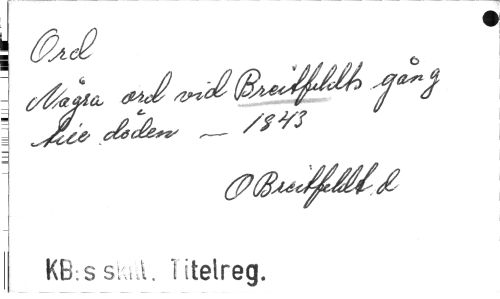 Ord
Några ord vid Breitfeldts gång
till döden — 1843
O Breitfeldt. d
KB:s skill. Titelreg.